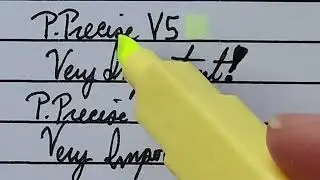 P. Precise V5
Very
P. Precise
Very Impo